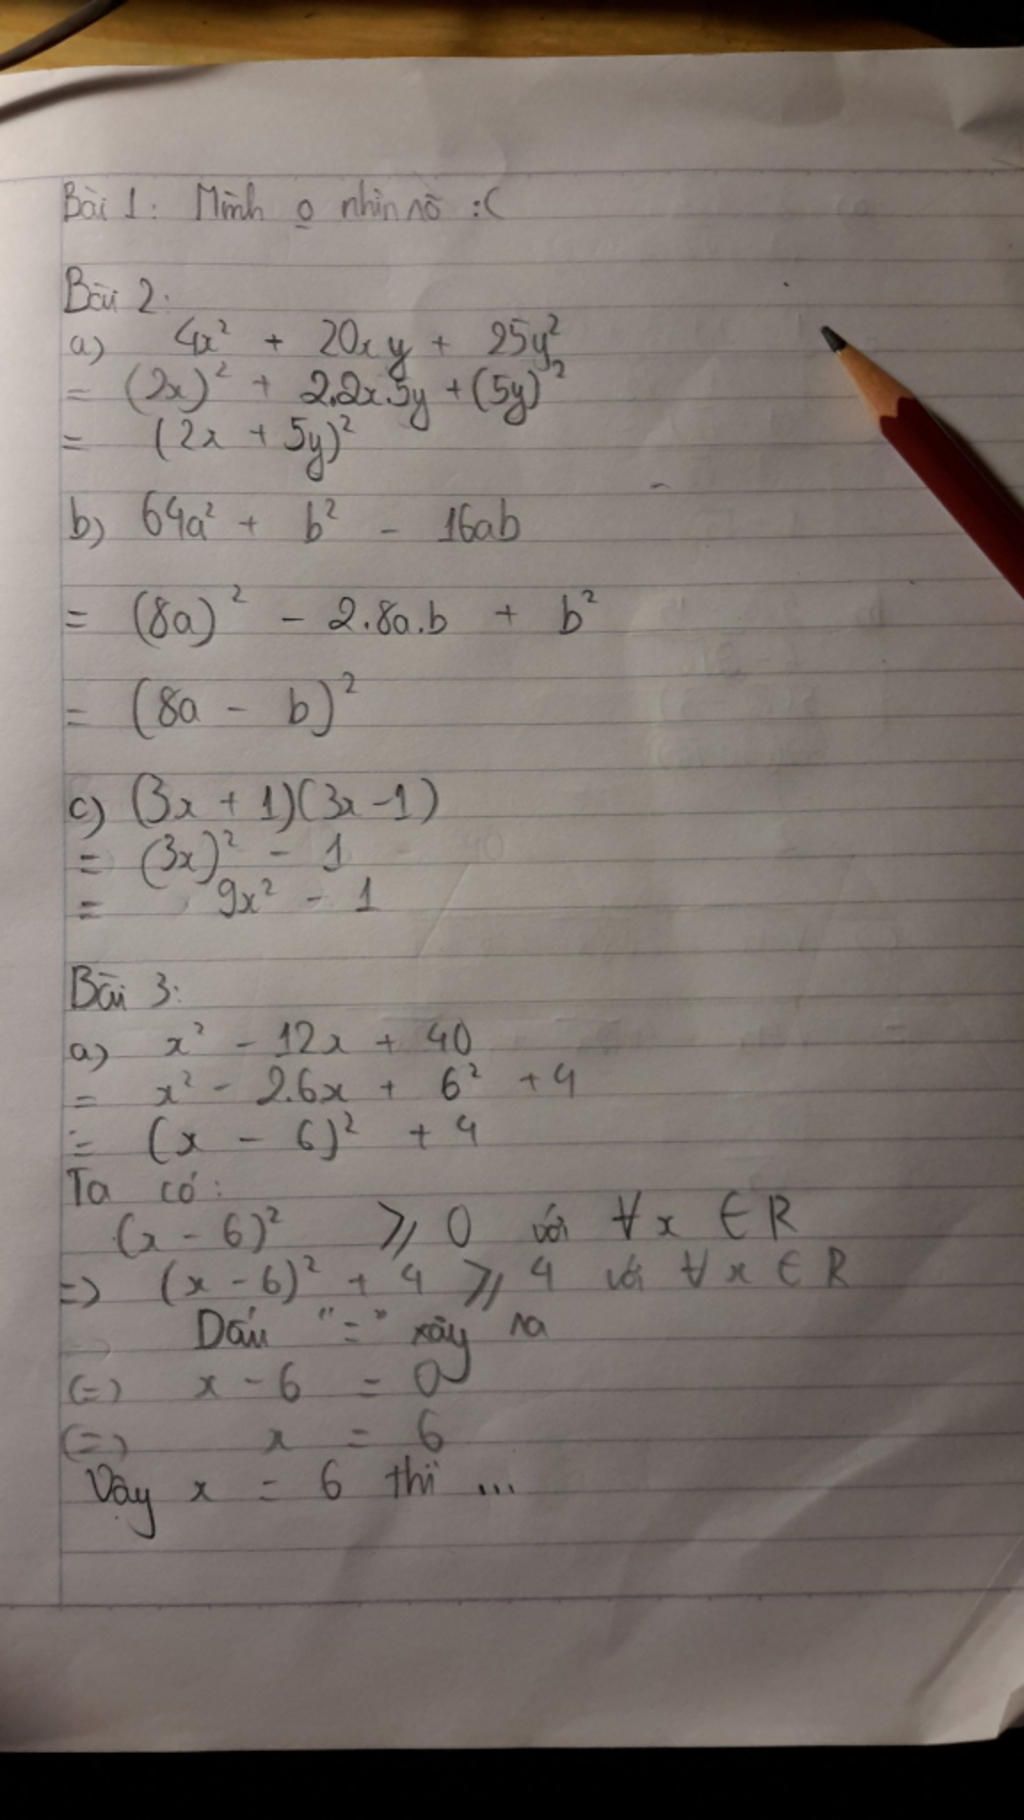 Bài 1: Mình o nhìn rõ :(
Bài 2:
a) 4x² + 20xy + 25y²
= (2x)² + 2.2x.5y + (5y)²
= (2x + 5y)²
b) 64a² + b² - 16ab
= (8a)² - 2.8a.b + b²
= (8a - b)²
c) (3x + 1)(3x - 1)
= (3x)² - 1
= 9x² - 1
Bài 3:
a) x² - 12x + 40
= x² - 2.6x + 6² + 4
= (x - 6)² + 4
Ta có:
(x - 6)² ⩾ 0 với ∀x ∈ R
=> (x - 6)² + 4 ⩾ 4 với ∀x ∈ R
Dấu "=" xảy ra
(=) x - 6 = 0
(=) x = 6
Vậy x = 6 thì ...